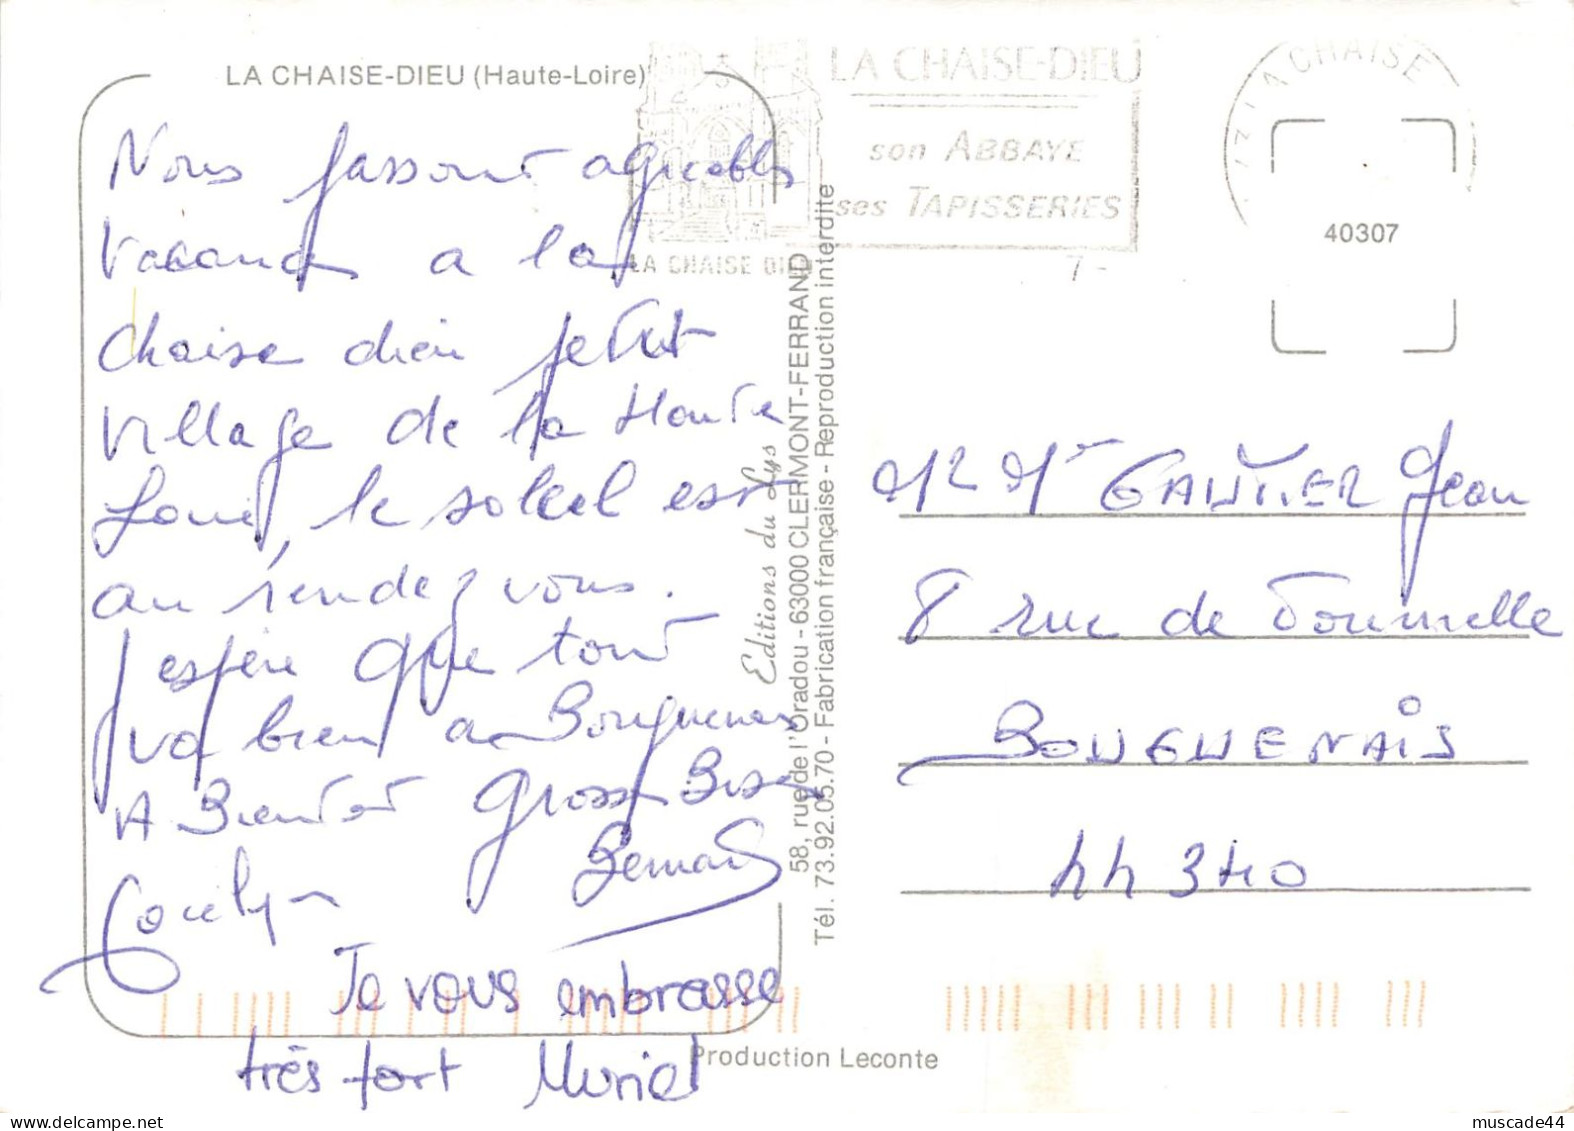 LA CHAISE-DIEU (Haute-Loire)
Nous passont agreables
Vacances a la
chaise dieu petit
village de la Haute
Loire, le soleil est
au rendez vous.
J espère que tout
va bien a Bouguenais
A Bientot grosse Bises
Jocelyn Bernard
Je vous embrasse
très fort Muriel
LA CHAISE-DIEU
son ABBAYE
ses TAPISSERIES
LA CHAISE DIEU
LA CHAISE
40307
Editions du Lys
58, rue de l'Oradou - 63000 CLERMONT-FERRAND
Tél. 73.92.05.70 - Fabrication française - Reproduction interdite
Mr Me GAUTIER Jean
8 rue de
BOUGUENAIS
44 340
Production Leconte
muscade44